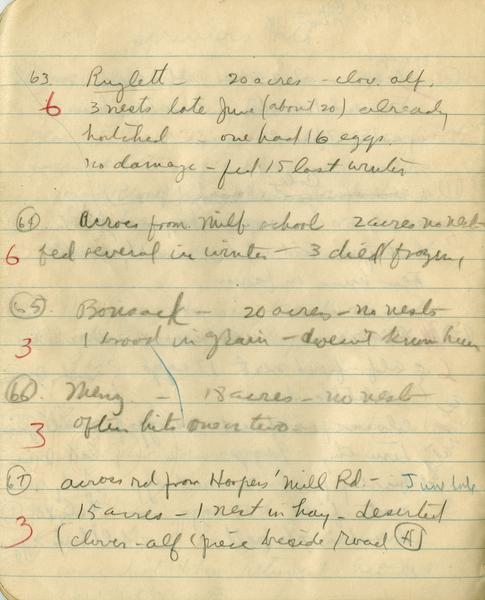 63. Ruglett - 20 acres - clov. alf.
6 3 nests late June (about 20) already
hatched - one had 16 eggs.
no damage - fed 15 last winter
64. Across from Milf school 2 acres no nests
6 fed several in winter - 3 died frozen,
65. Bonsack - 20 acres - no nests
3 1 brood in grain - doesn't know hen
66. Meng - 18 acres - no nests
3 often hits one or two -
67. across rd from Harpers' Mill Rd. - June
15 acres - 1 nest in hay - deserted
3 (clover - alf (piece beside road (A)